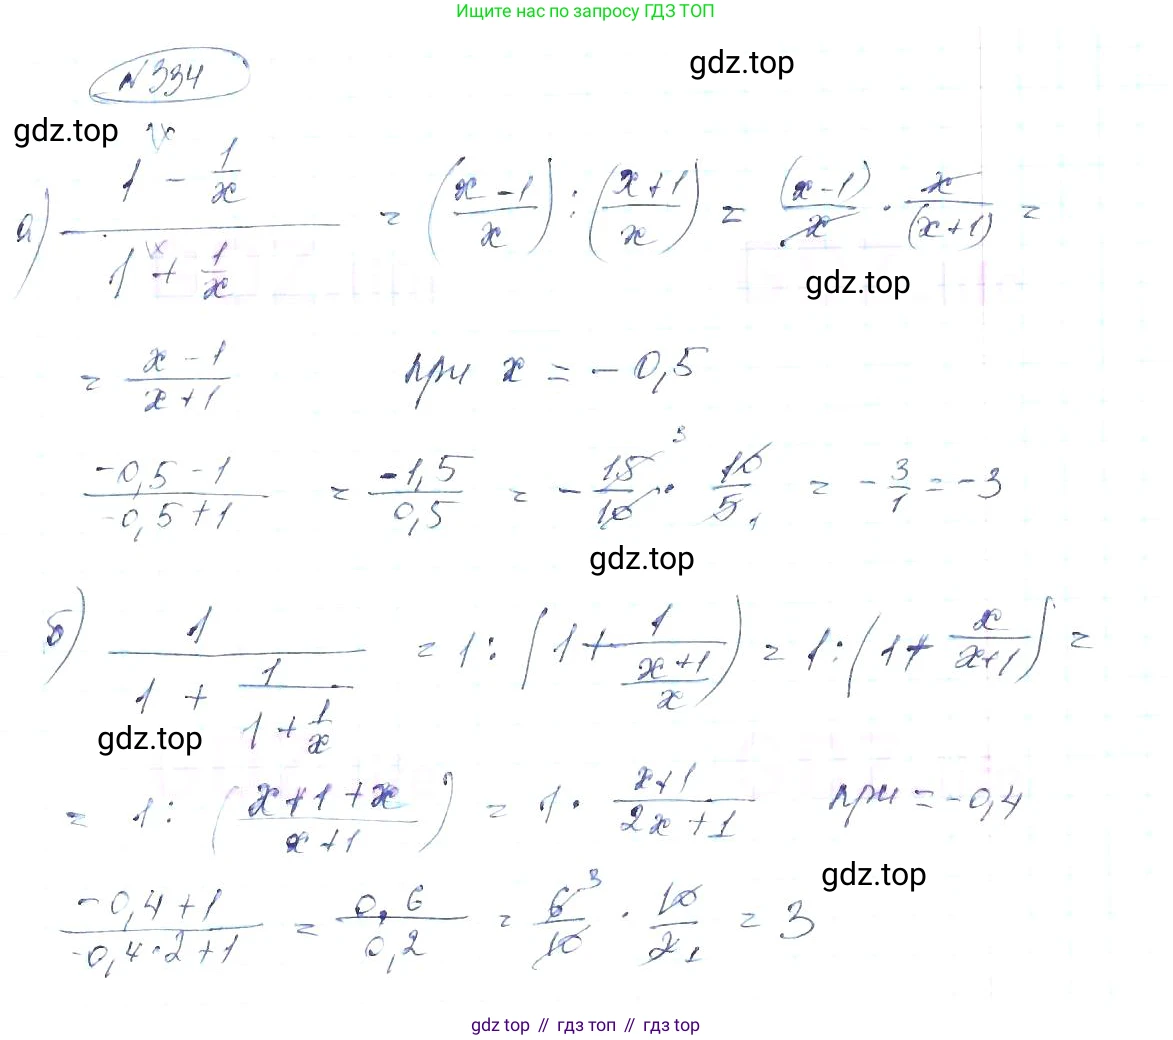 Ищите нас по запросу ГДЗ ТОП
№334
gdz.top
gdz.top
а) (1\x - 1/x)/(1\x + 1/x) = ((x-1)/x) : ((x+1)/x) = (x-1)/x · x/(x+1) =
gdz.top
= (x-1)/(x+1) при x = -0,5
(-0,5-1)/(-0,5+1) = -1,5/0,5 = -15/10 · 10/5 = -3/1 = -3
gdz.top
б) 1/(1 + 1/(1 + 1/x)) = 1 : (1 + 1/((x+1)/x)) = 1 : (1 + x/(x+1)) =
gdz.top
= 1 : ((x+1+x)/(x+1)) = 1 · (x+1)/(2x+1) при = -0,4
gdz.top
(-0,4+1)/(-0,4·2+1) = 0,6/0,2 = 6/10 · 10/2 = 3
gdz top // гдз топ // гдз top